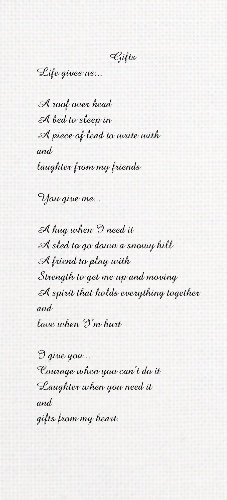 Gifts
Life gives us...
A roof over head
A bed to sleep in
A piece of lead to write with
and
laughter from my friends
You give me...
A hug when I need it
A sled to go down a snowy hill
A friend to play with
Strength to get me up and moving
A spirit that holds everything together
and
love when I'm hurt
I give you...
Courage when you can't do it
Laughter when you need it
and
gifts from my heart.